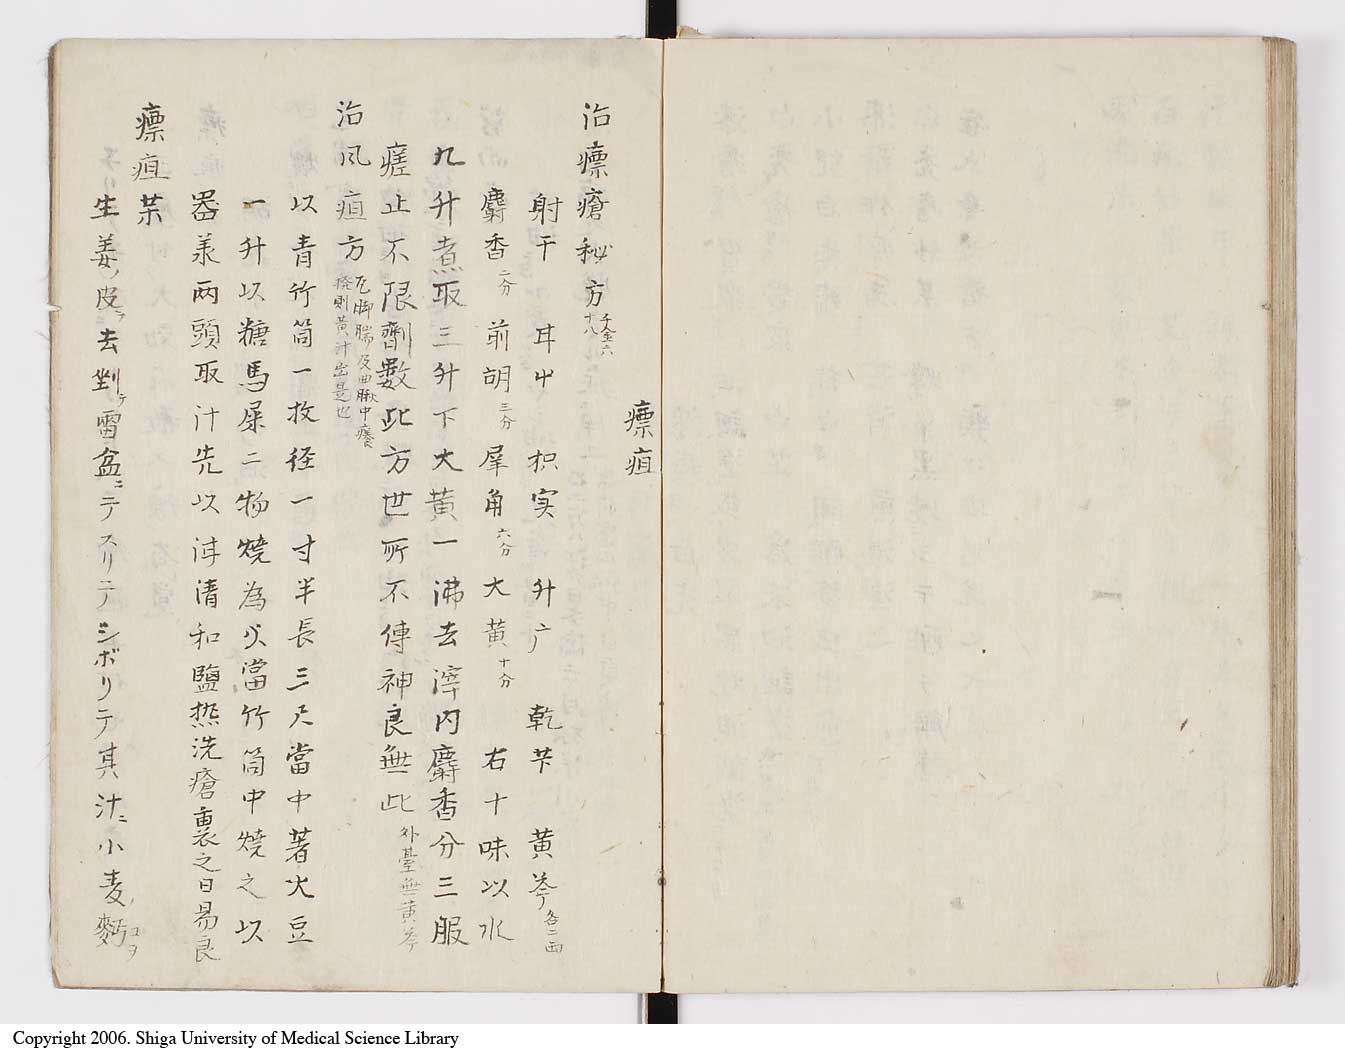 瘭疽
治瘭瘡秘方 千金六十八
射干 甘屮 枳実 升广 乾芐 黄芩各二両
麝香二分 前胡三分 犀角六分 大黄十分 右十味以水
九升煮取三升下大黄一沸去滓内麝香分三服
瘥止不限劑數此方世所不傳神良無此 外臺無黄芩
治风疽方 凡脚腨及曲脉中癢搔則黄汁出是也
以青竹筒一枚径一寸半長三尺當中著大豆
一升以糖馬屎二物燒為火當竹筒中燒之以
器羕两頭取汁先以泔清和鹽热洗瘡裏之日易良
瘭疽茱
生姜ノ皮ヲ去剉テ雷盆ニテスリテシボリテ其汁ニ小麦ノ麪コヲ
Copyright 2006. Shiga University of Medical Science Library